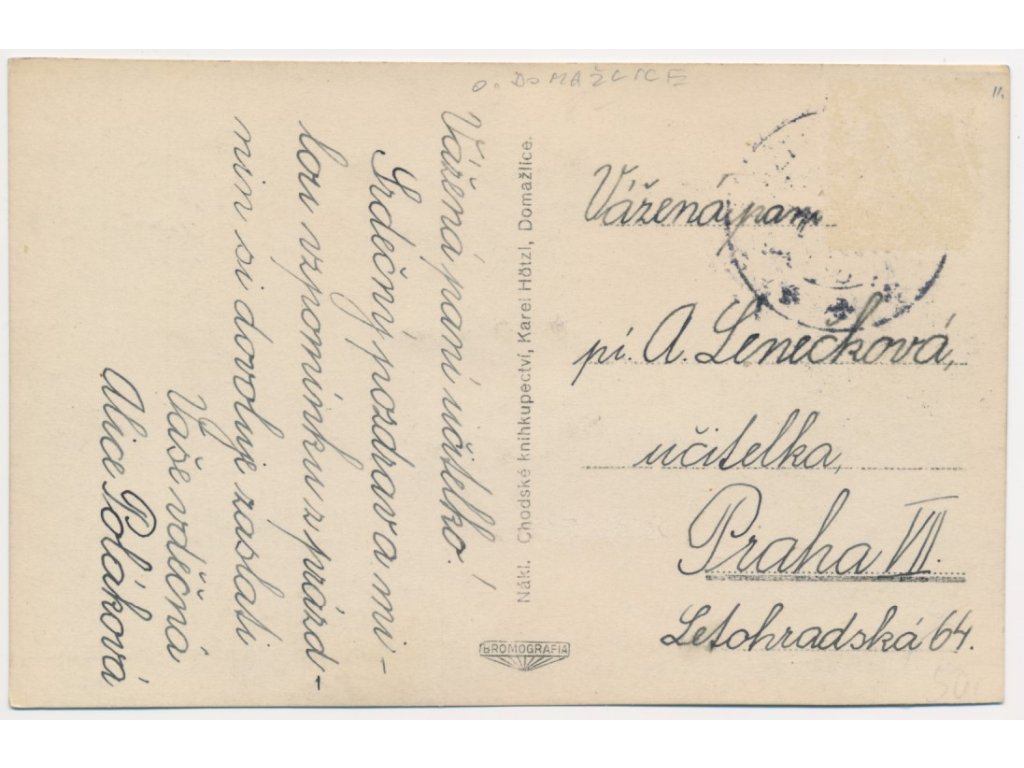 o. DOMAŽLICE
11.
Vážená paní učitelko!
Srdečný pozdrav a mi-
lou vzpomínku z prázd-
nin si dovoluje zaslati
Vaše vděčná
Alice Poláková
Nákl. Chodské knihkupectví, Karel Hötzl, Domažlice.
BROMOGRAFIA
Vážená paní
pí. A. Lenečková,
učitelka,
Praha VII.
Letohradská 64.
50,